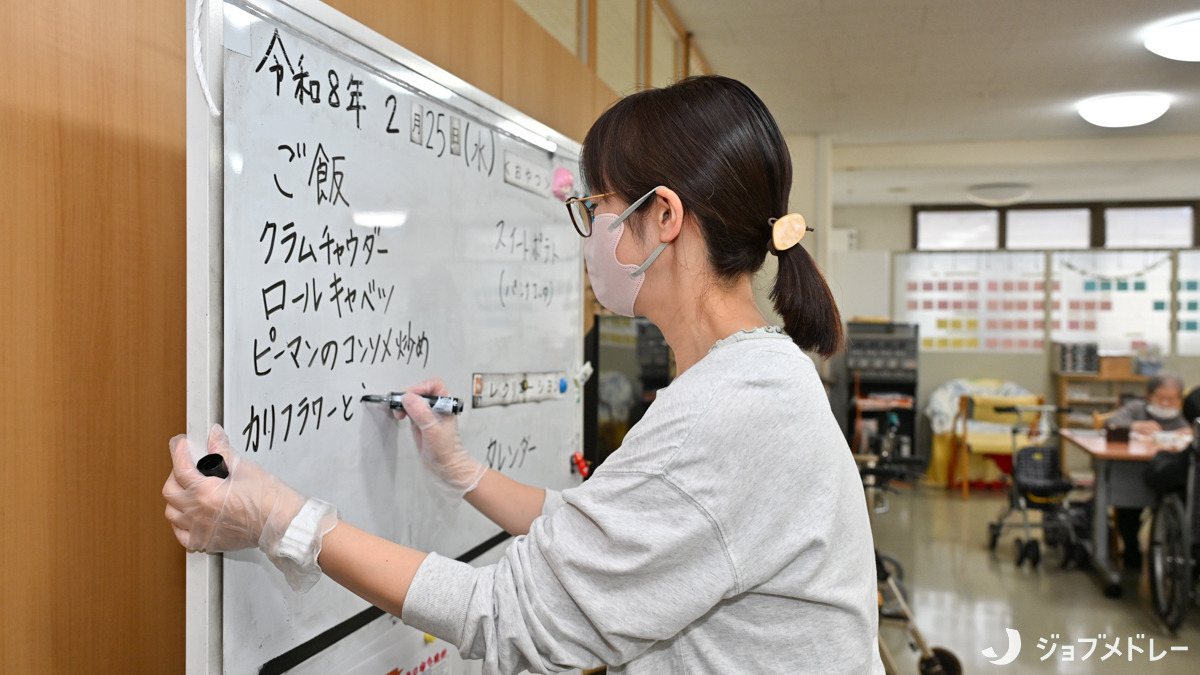 令和8年 2月25日(水)
ご飯
クラムチャウダー
ロールキャベツ
ピーマンのコンソメ炒め
カリフラワーと
<おやつ>
スイートポテト
レクリエーション
カレンダー
ジョブメドレー